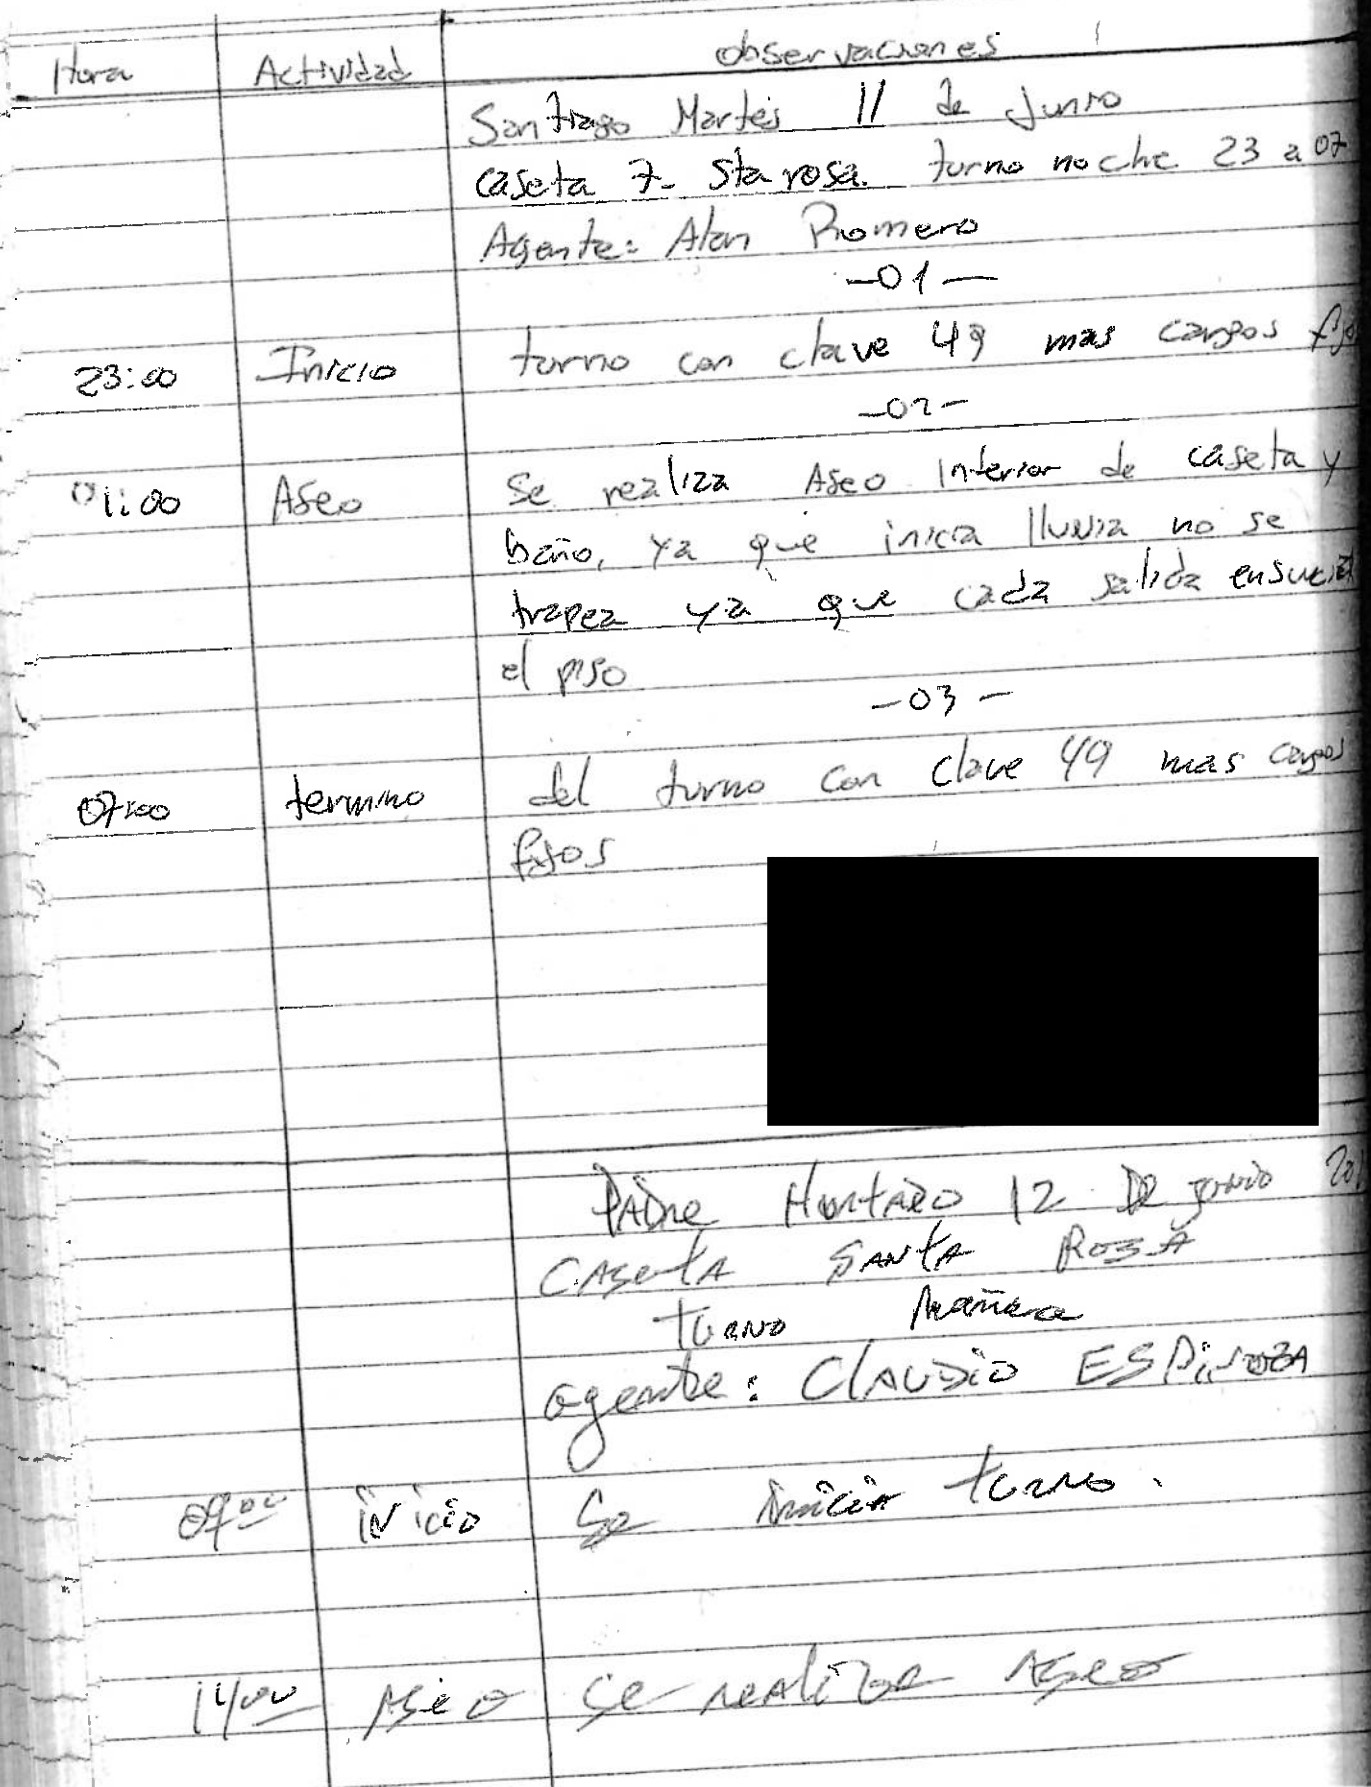 Hora Actividad observaciones
Santiago Martes 11 de Junio
caseta 7- Sta rosa. turno noche 23 a 07
Agente: Alan Romero
-01-
23:00 Inicio turno con clave 49 mas cargos
-02-
01:00 Aseo Se realiza Aseo Interior de caseta y
baño, ya que inicia lluvia no se
trapea ya que cada salida ensucia
el piso
-03-
07:00 termino del turno con clave 49 mas cargos
fijos
Padre Hurtado 12 De junio 201
Caseta Santa Rosa
turno mañana
agente: Claudio ESPinoza
07:00 inicio Se inicia turno.
14:00 Aseo Se realiza Aseo